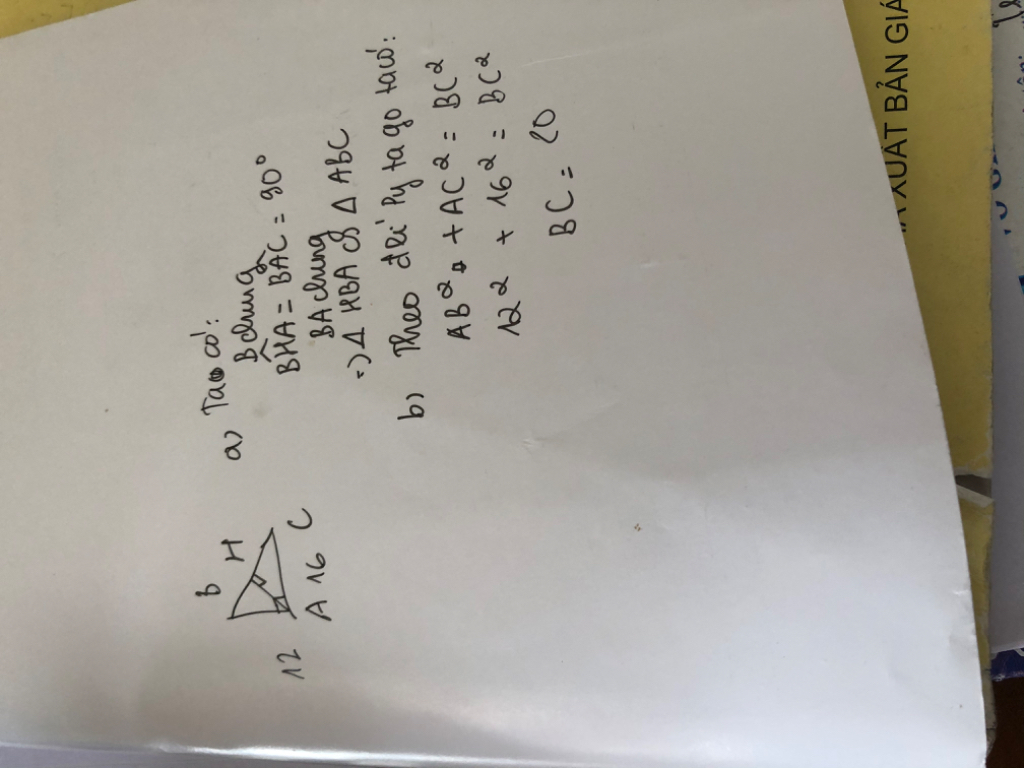 a) Ta có:
B chung
BHA = BAC = 90°
BA chung
=) Δ HBA ∽ Δ ABC
b) Theo đlí Py ta go ta có:
AB² + AC² = BC²
12² + 16² = BC²
BC = 20
B
H
12
A 16 C
XUẤT BẢN GIÁ